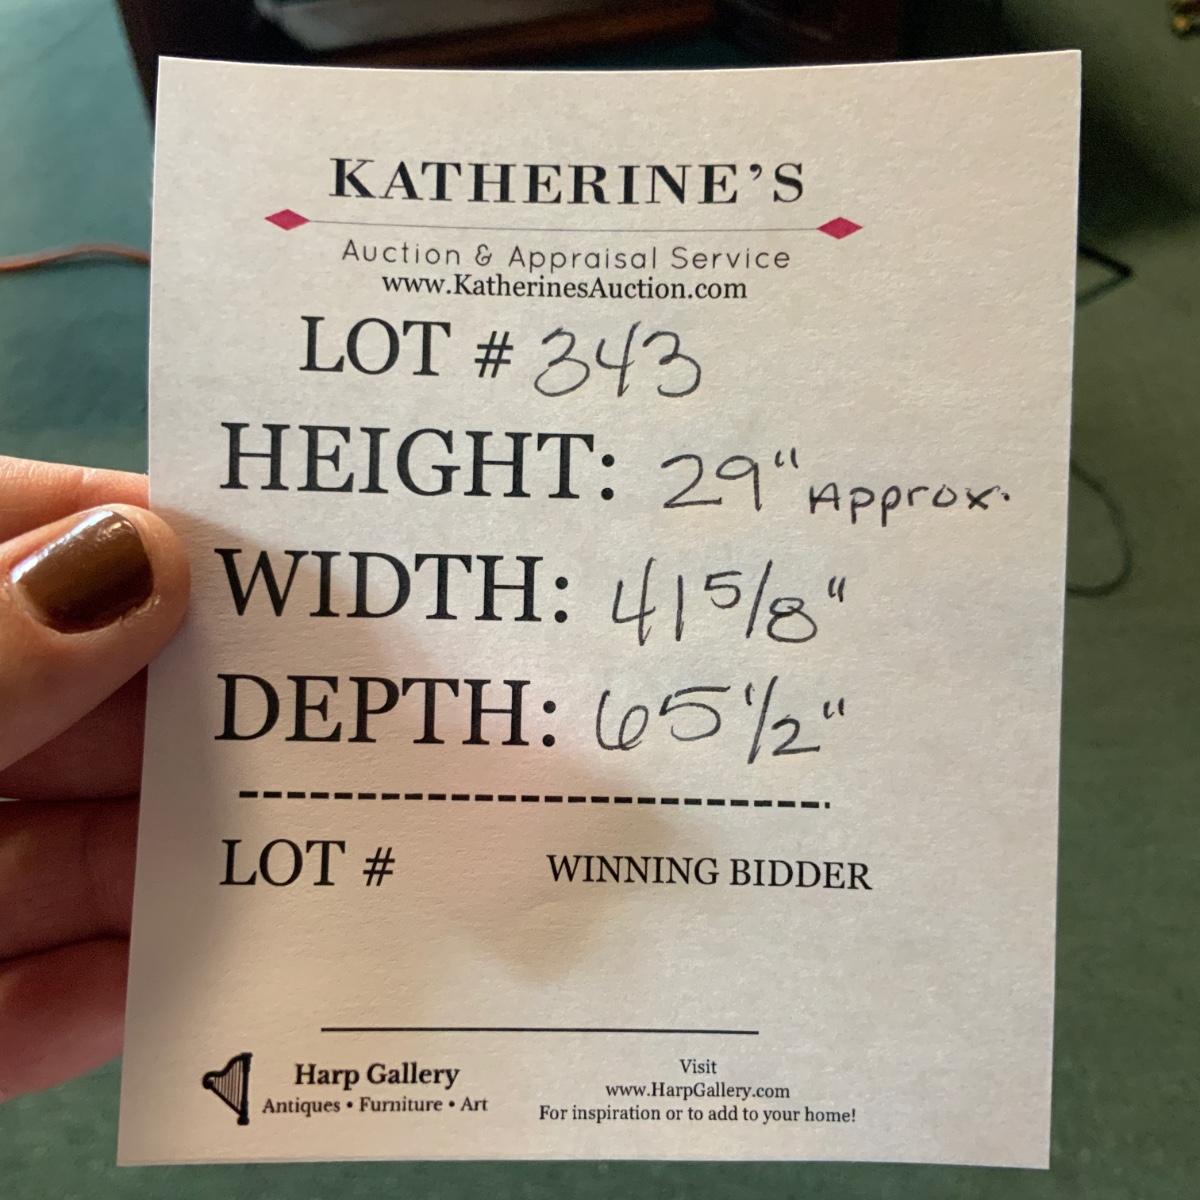 KATHERINE'S
Auction & Appraisal Service
www.KatherinesAuction.com
LOT # 343
HEIGHT: 29" Approx.
WIDTH: 41 5/8"
DEPTH: 65 1/2"
LOT # WINNING BIDDER
Harp Gallery
Antiques • Furniture • Art
Visit
www.HarpGallery.com
For inspiration or to add to your home!